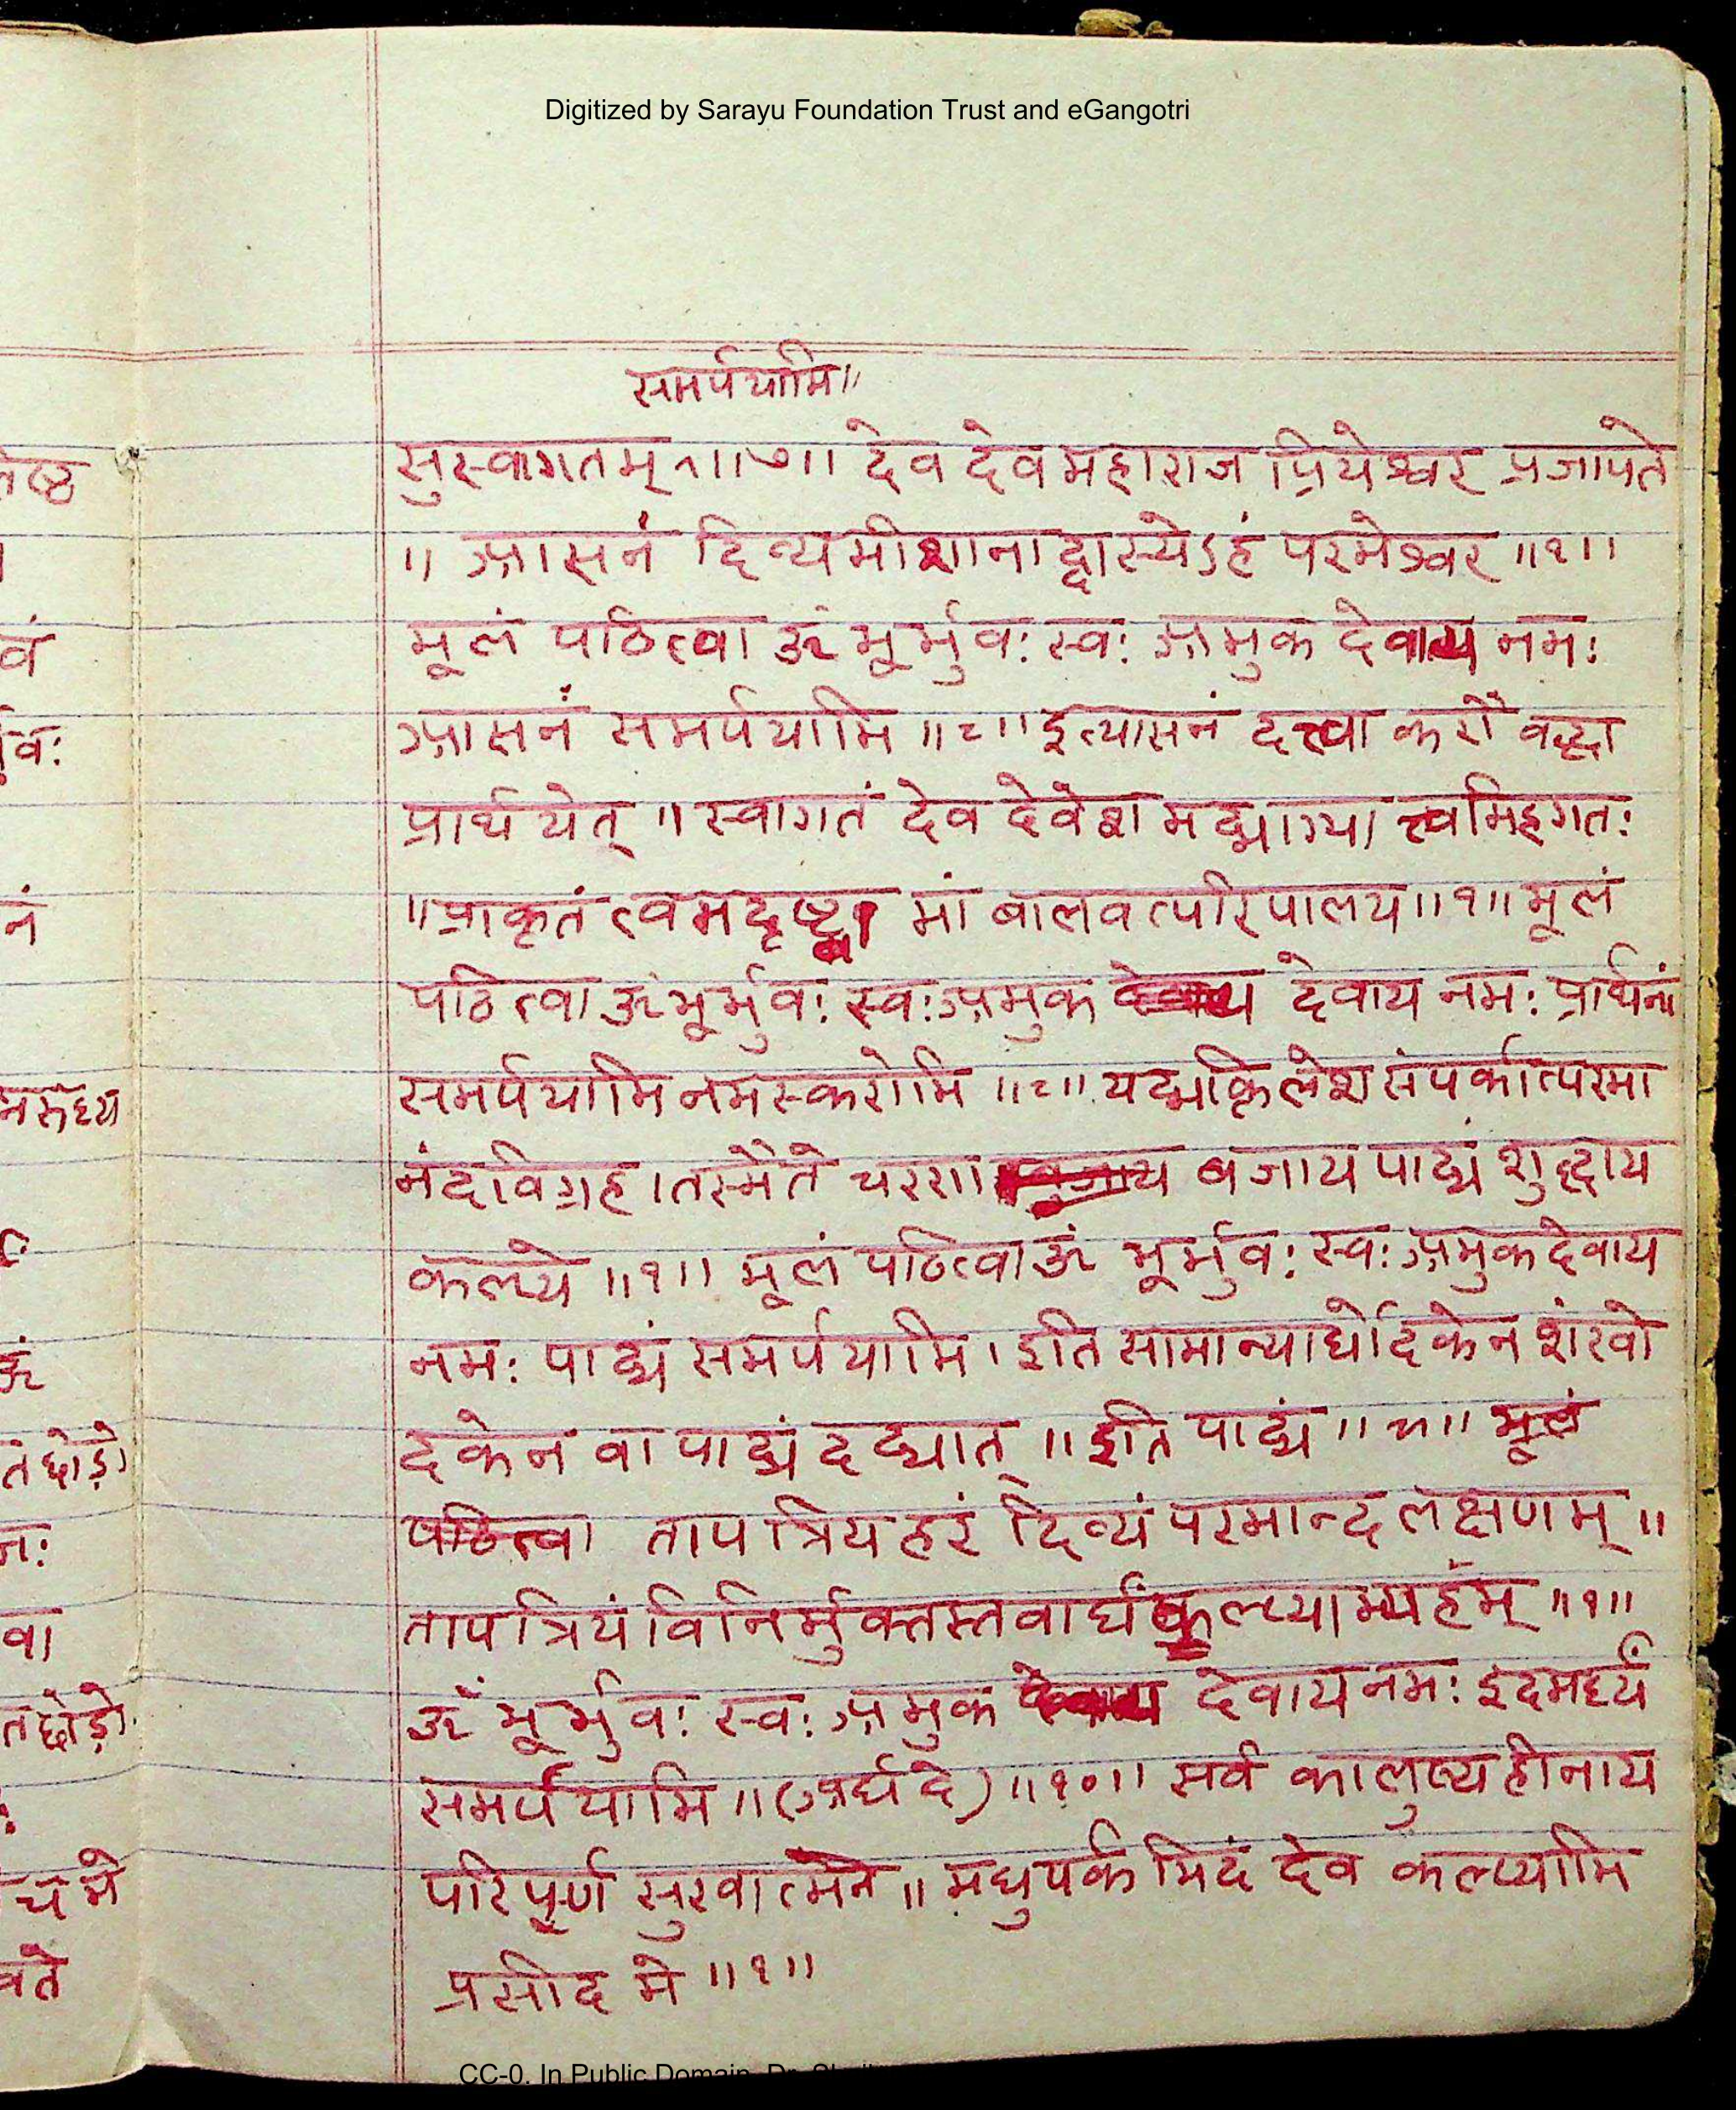 Digitized by Sarayu Foundation Trust and eGangotri
समर्पयामि॥
सुस्वागतम् ॥७॥ देव देव महाराज प्रियेश्वर प्रजापते
॥ आसनं दिव्यमीशानाद्दास्येऽहं परमेश्वर ॥१॥
मूलं पठित्वा ॐ भूर्भुवः स्वः अमुक देवाय नमः
आसनं समर्पयामि ॥८॥ इत्यासनं दत्त्वा करौ वद्ध्वा
प्रार्थयेत् ॥ स्वागतं देव देवेश मद्भाग्या त्त्वमिहगतः
॥ प्राकृतं त्वमदृष्ट्वा मां बालवत्परिपालय॥१॥ मूलं
पठित्वा ॐ भूर्भुवः स्वः अमुक देवाय नमः प्रार्थनां
समर्पयामि नमस्करोमि ॥८॥ यद्भक्तिलेश संपर्कात्परमा
नंदविग्रह । तस्मै ते चरणा बजाय पाद्यं शुद्धाय
कल्पये ॥१॥ मूलं पठित्वा ॐ भूर्भुवः स्वः अमुक देवाय
नमः पाद्यं समर्पयामि । इति सामान्यार्घोदकेन शंखो
दकेन वा पाद्यं दद्यात् ॥ इति पाद्यं ॥९॥ मूलं
पठित्वा तापत्रियहरं दिव्यं परमान्द लक्षणम् ॥
तापत्रियंविनिर्मुक्तस्तवार्घं कल्पयाम्यहंम् ॥१॥
ॐ भूर्भुवः स्वः अमुक देवाय नमः इदमर्घ्यं
समर्पयामि ॥ (अर्घ दे) ॥१०॥ सर्व कालुष्यहीनाय
परिपूर्ण सुखात्मने ॥ मधुपर्कमिदं देव कल्प्यामि
प्रसीद मे ॥१॥
CC-0. In Public Domain.